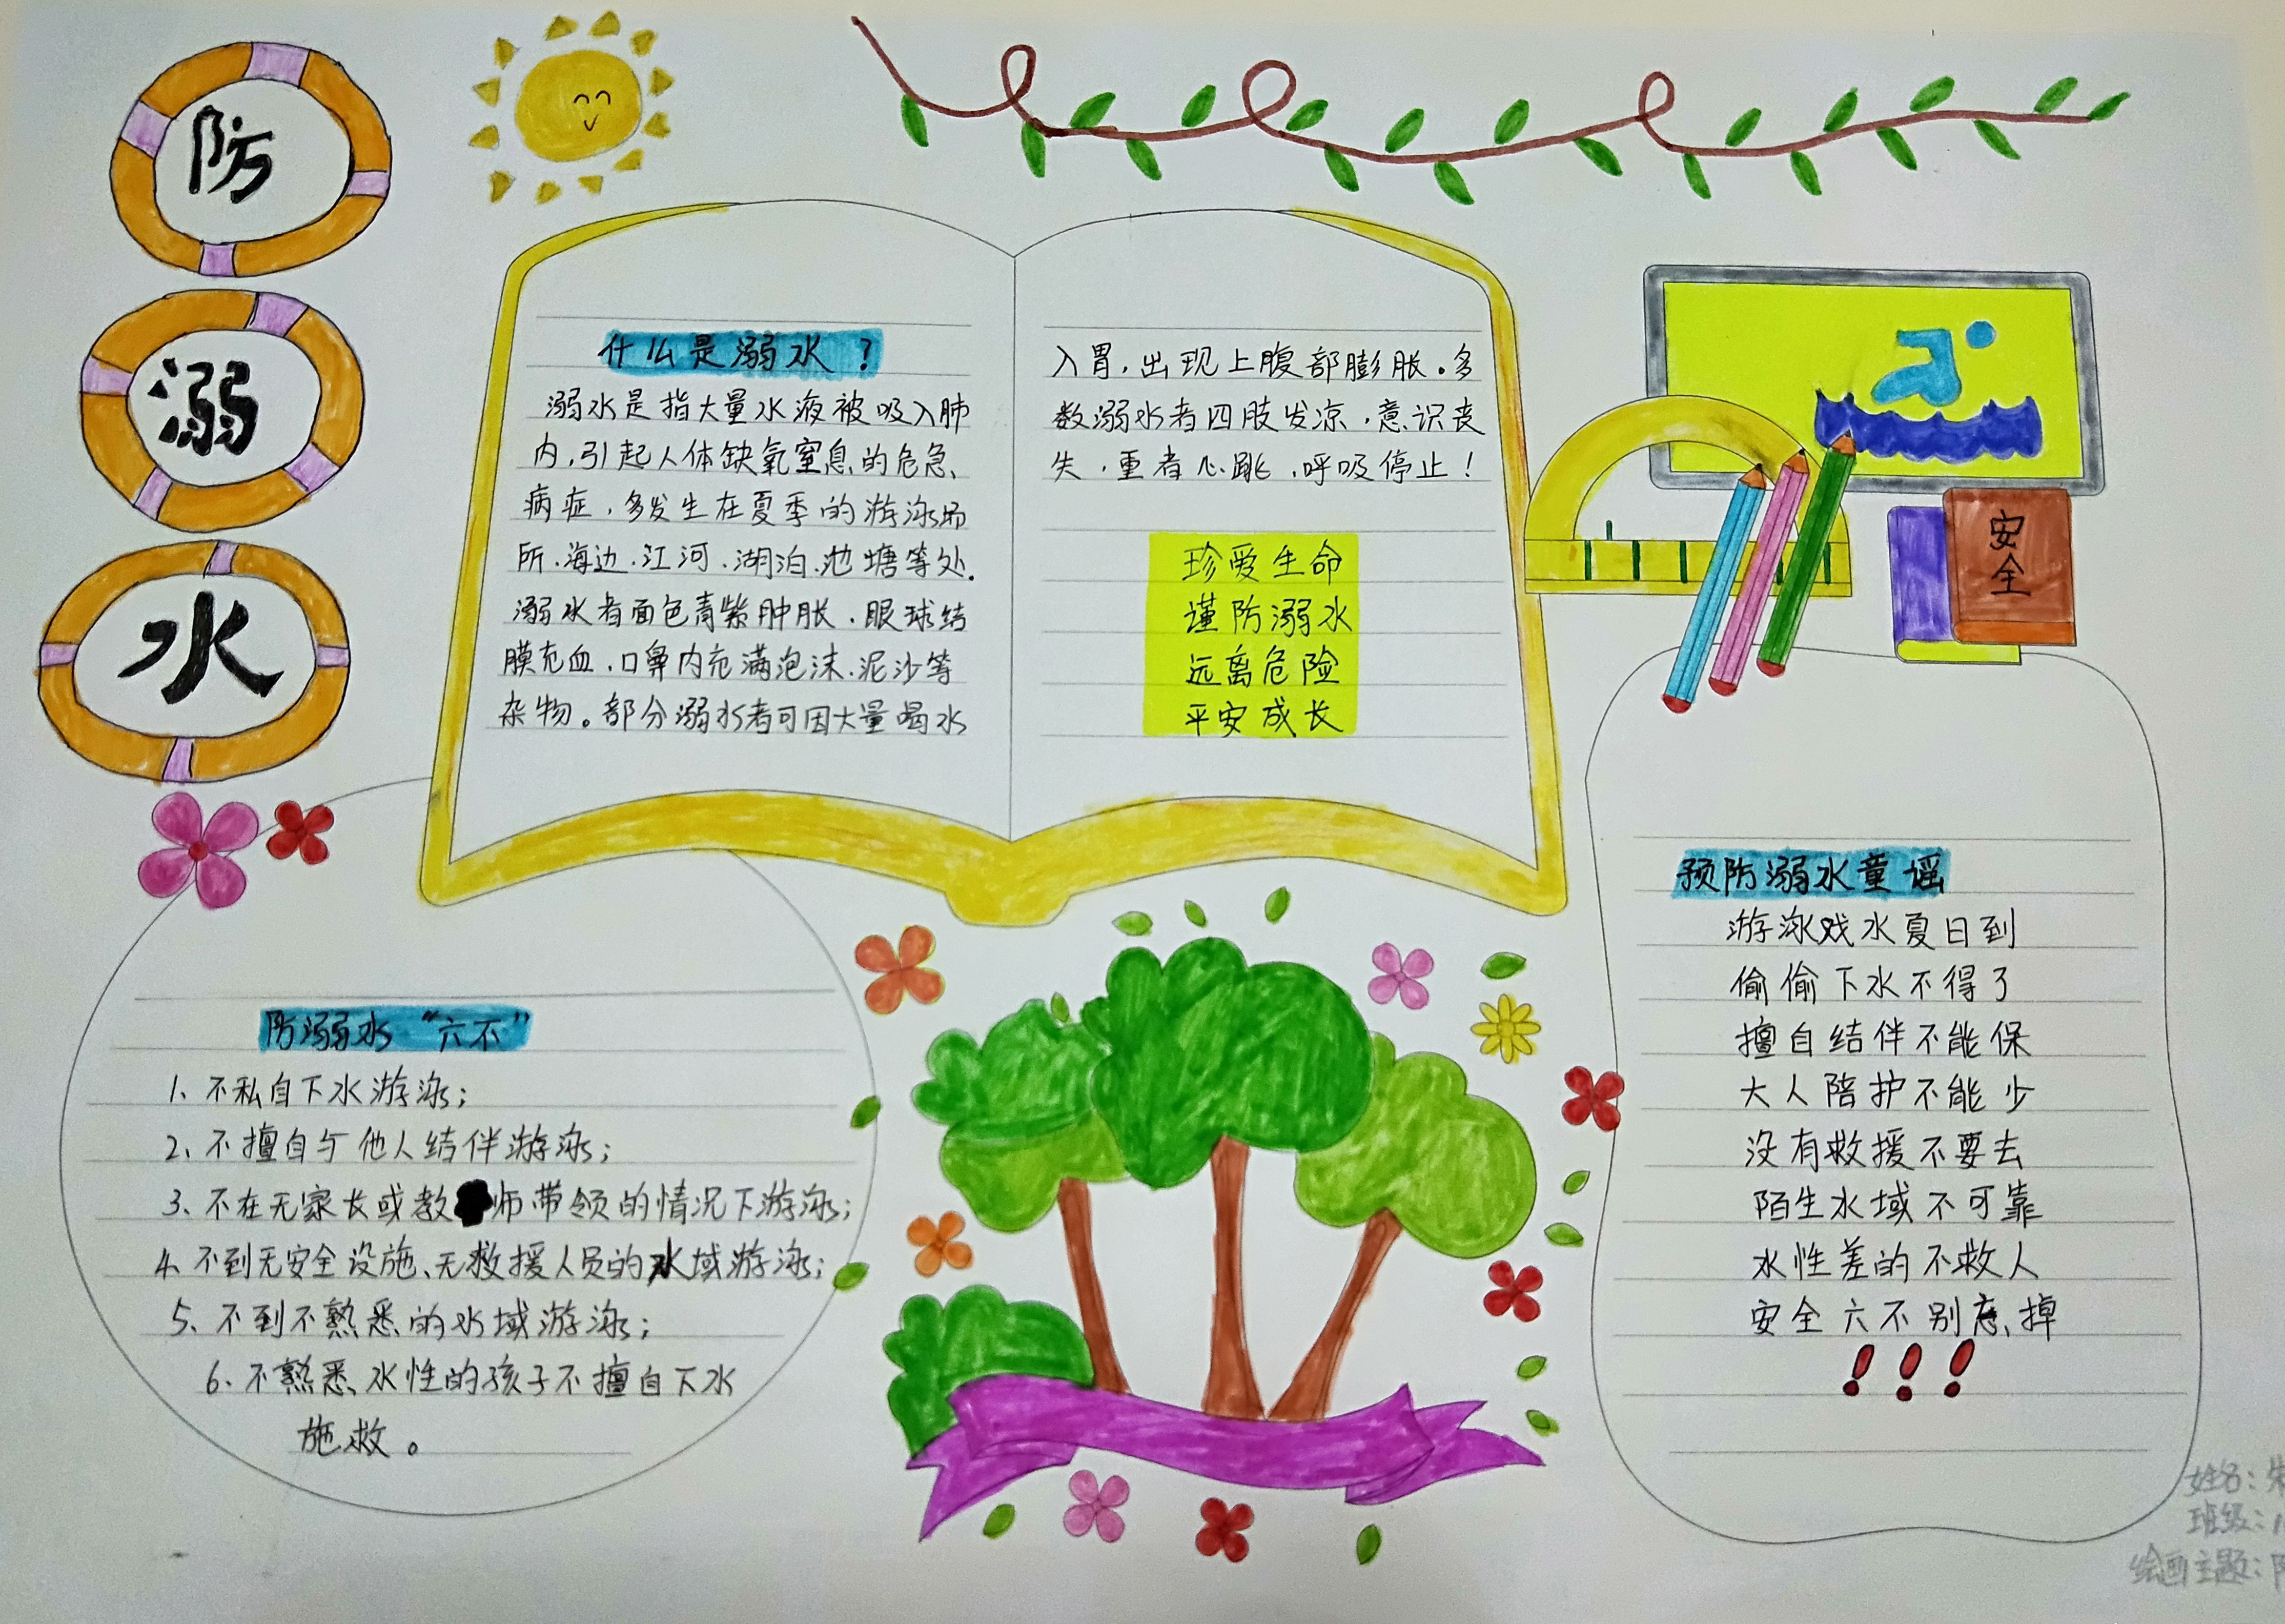 防
溺
水
什么是溺水？
溺水是指大量水液被吸入肺
内，引起人体缺氧窒息的危急
病症，多发生在夏季的游泳场
所、海边、江河、湖泊、池塘等处。
溺水者面色青紫肿胀、眼球结
膜充血，口鼻内充满泡沫、泥沙等
杂物。部分溺水者可因大量喝水
入胃，出现上腹部膨胀。多
数溺水者四肢发凉，意识丧
失，重者心跳、呼吸停止！
珍爱生命
谨防溺水
远离危险
平安成长
安
全
防溺水“六不”
1、不私自下水游泳；
2、不擅自与他人结伴游泳；
3、不在无家长或教师带领的情况下游泳；
4、不到无安全设施、无救援人员的水域游泳；
5、不到不熟悉的水域游泳；
6、不熟悉水性的孩子不擅自下水
施救。
预防溺水童谣
游泳戏水夏日到
偷偷下水不得了
擅自结伴不能保
大人陪护不能少
没有救援不要去
陌生水域不可靠
水性差的不救人
安全六不别忘掉
！！！
姓名：朱
班级：
绘画主题：防